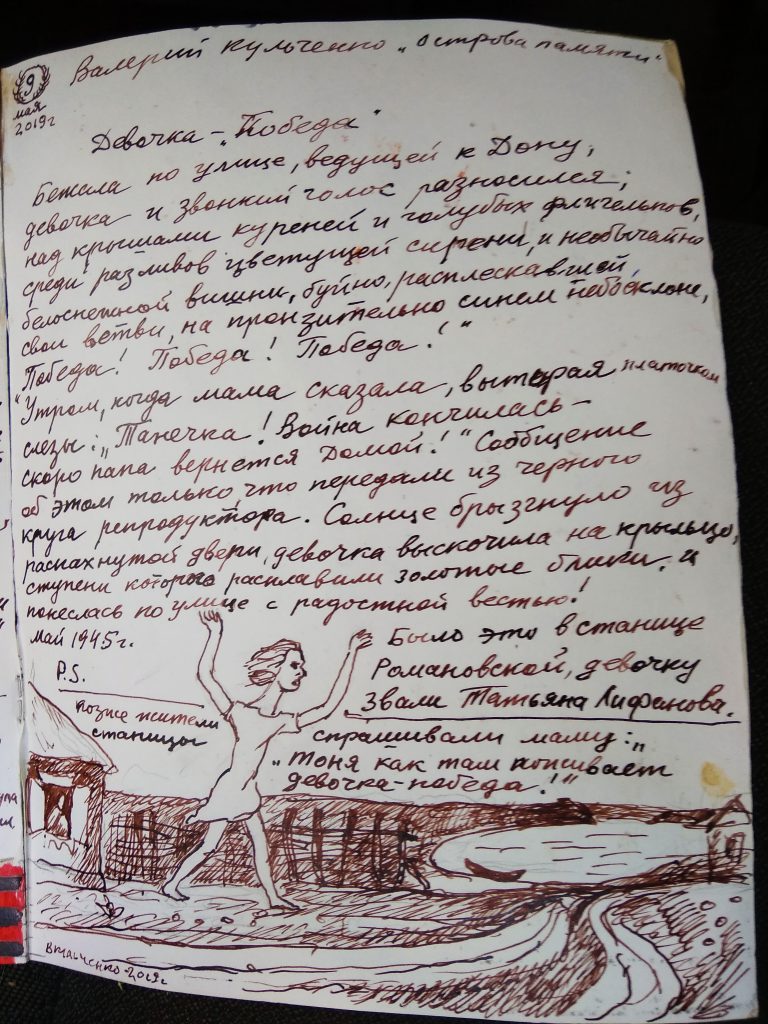 Валерий Кульченко „Острова памяти"
9
мая
2019г
Девочка - „Победа"
Бежала по улице, ведущей к Дону,
девочка и звонкий голос разносился;
над крышами куреней и голубых флигельков,
среди разливов цветущей сирени, и необычайно
белоснежной вишни, буйно, расплескавшей,
свои ветви, на пронзительно синем небосклоне,
Победа! Победа! Победа!"
"Утром, когда мама сказала, вытирая платочком
слезы: „Танечка! Война кончилась-
скоро папа вернется домой!" Сообщение
об этом только что передали из черного
круга репродуктора. Солнце брызгнуло из
распахнутой двери, девочка выскочила на крыльцо,
ступени которого расплавили золотые блики, и
понеслась по улице с радостной вестью!
май 1945г.
Было это в станице
Романовской, девочку
звали Татьяна Лифанова.
P.S.
позже жители
станицы
спрашивали маму: „
„Тоня как там поживает
девочка-победа!"
2019г.